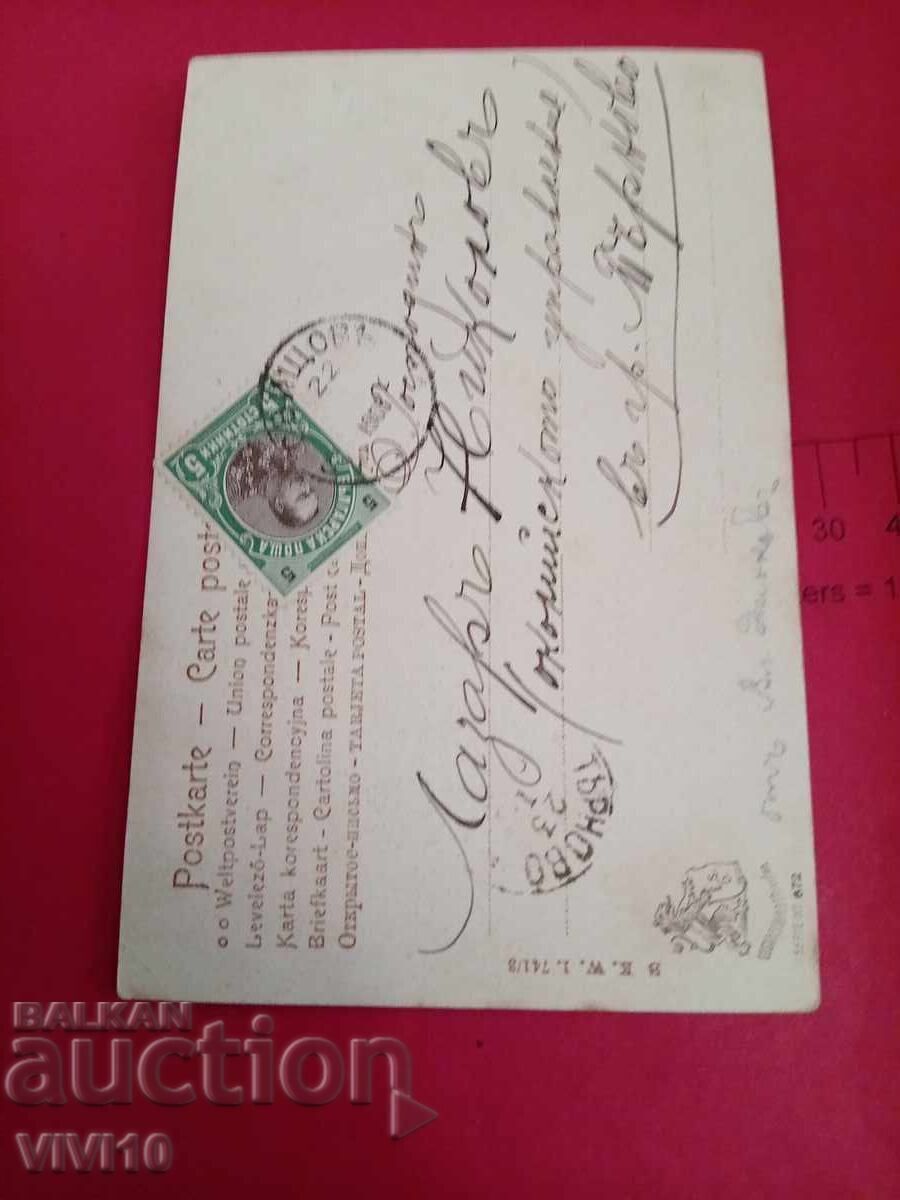 Postkarte — Carte post
Weltpostverein — Union postale
Levelező-Lap — Correspondenzka
Karta korespondencyjna — Koresp
Briefkaart - Cartolina postale - Post c
Открытое-письмо - TARJETA POSTAL - Доп
5
СТОТИНКИ
БЪЛГАРСКА ПОЩА
5
5
22
Господинъ
Лазаръ Николовъ
управление
въ гр. Търново
ТЪРНОВО
отъ
B K. W. I. 741/8
672
30
ers = 1
BALKAN
auction
VIVI10